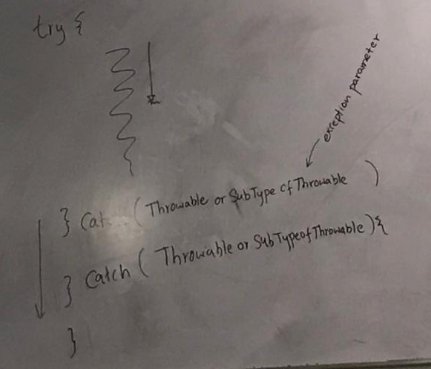 try {
exception parameter
} Catch ( Throwable or SubType of Throwable )
} Catch ( Throwable or SubTypeofThrowable ) {
}